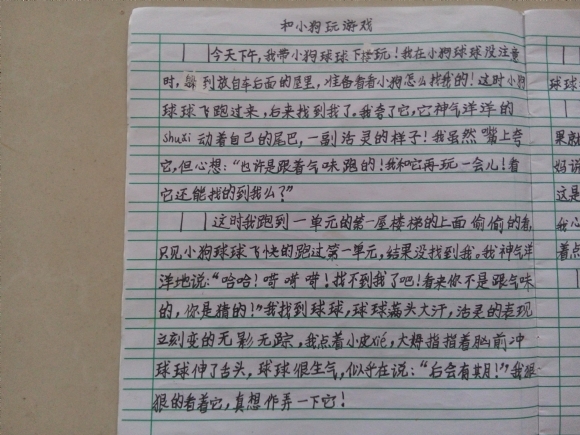 和小狗玩游戏
今天下午,我带小狗球球下楼玩!我在小狗球球没注意
时,躲到放自车后面的屋里,准备看看小狗怎么找我的!这时小狗
球球飞跑过来,后来找到我了。我夸了它,它神气洋洋的
shuǎi动着自己的尾巴,一副活灵的样子!我虽然嘴上夸
它,但心想:“也许是跟着气味跑的!我和它再玩一会儿!看
它还能找的到我么?”
这时我跑到一单元的第一屋楼梯的上面偷偷的看,
只见小狗球球飞快的跑过第一单元,结果没找到我。我神气洋
洋地说:“哈哈!嗬嗬嗬!找不到我了吧!看来你不是跟气味
的,你是猜的!”我找到球球,球球满头大汗,活灵的表现
立刻变的无影无踪,我点着小皮,大拇指指着脑前冲
球球伸了舌头,球球很生气,似乎在说:“后会有期!”我狠
狠的看着它,真想作弄一下它!
球球
果就
好说
这是
我心
着点